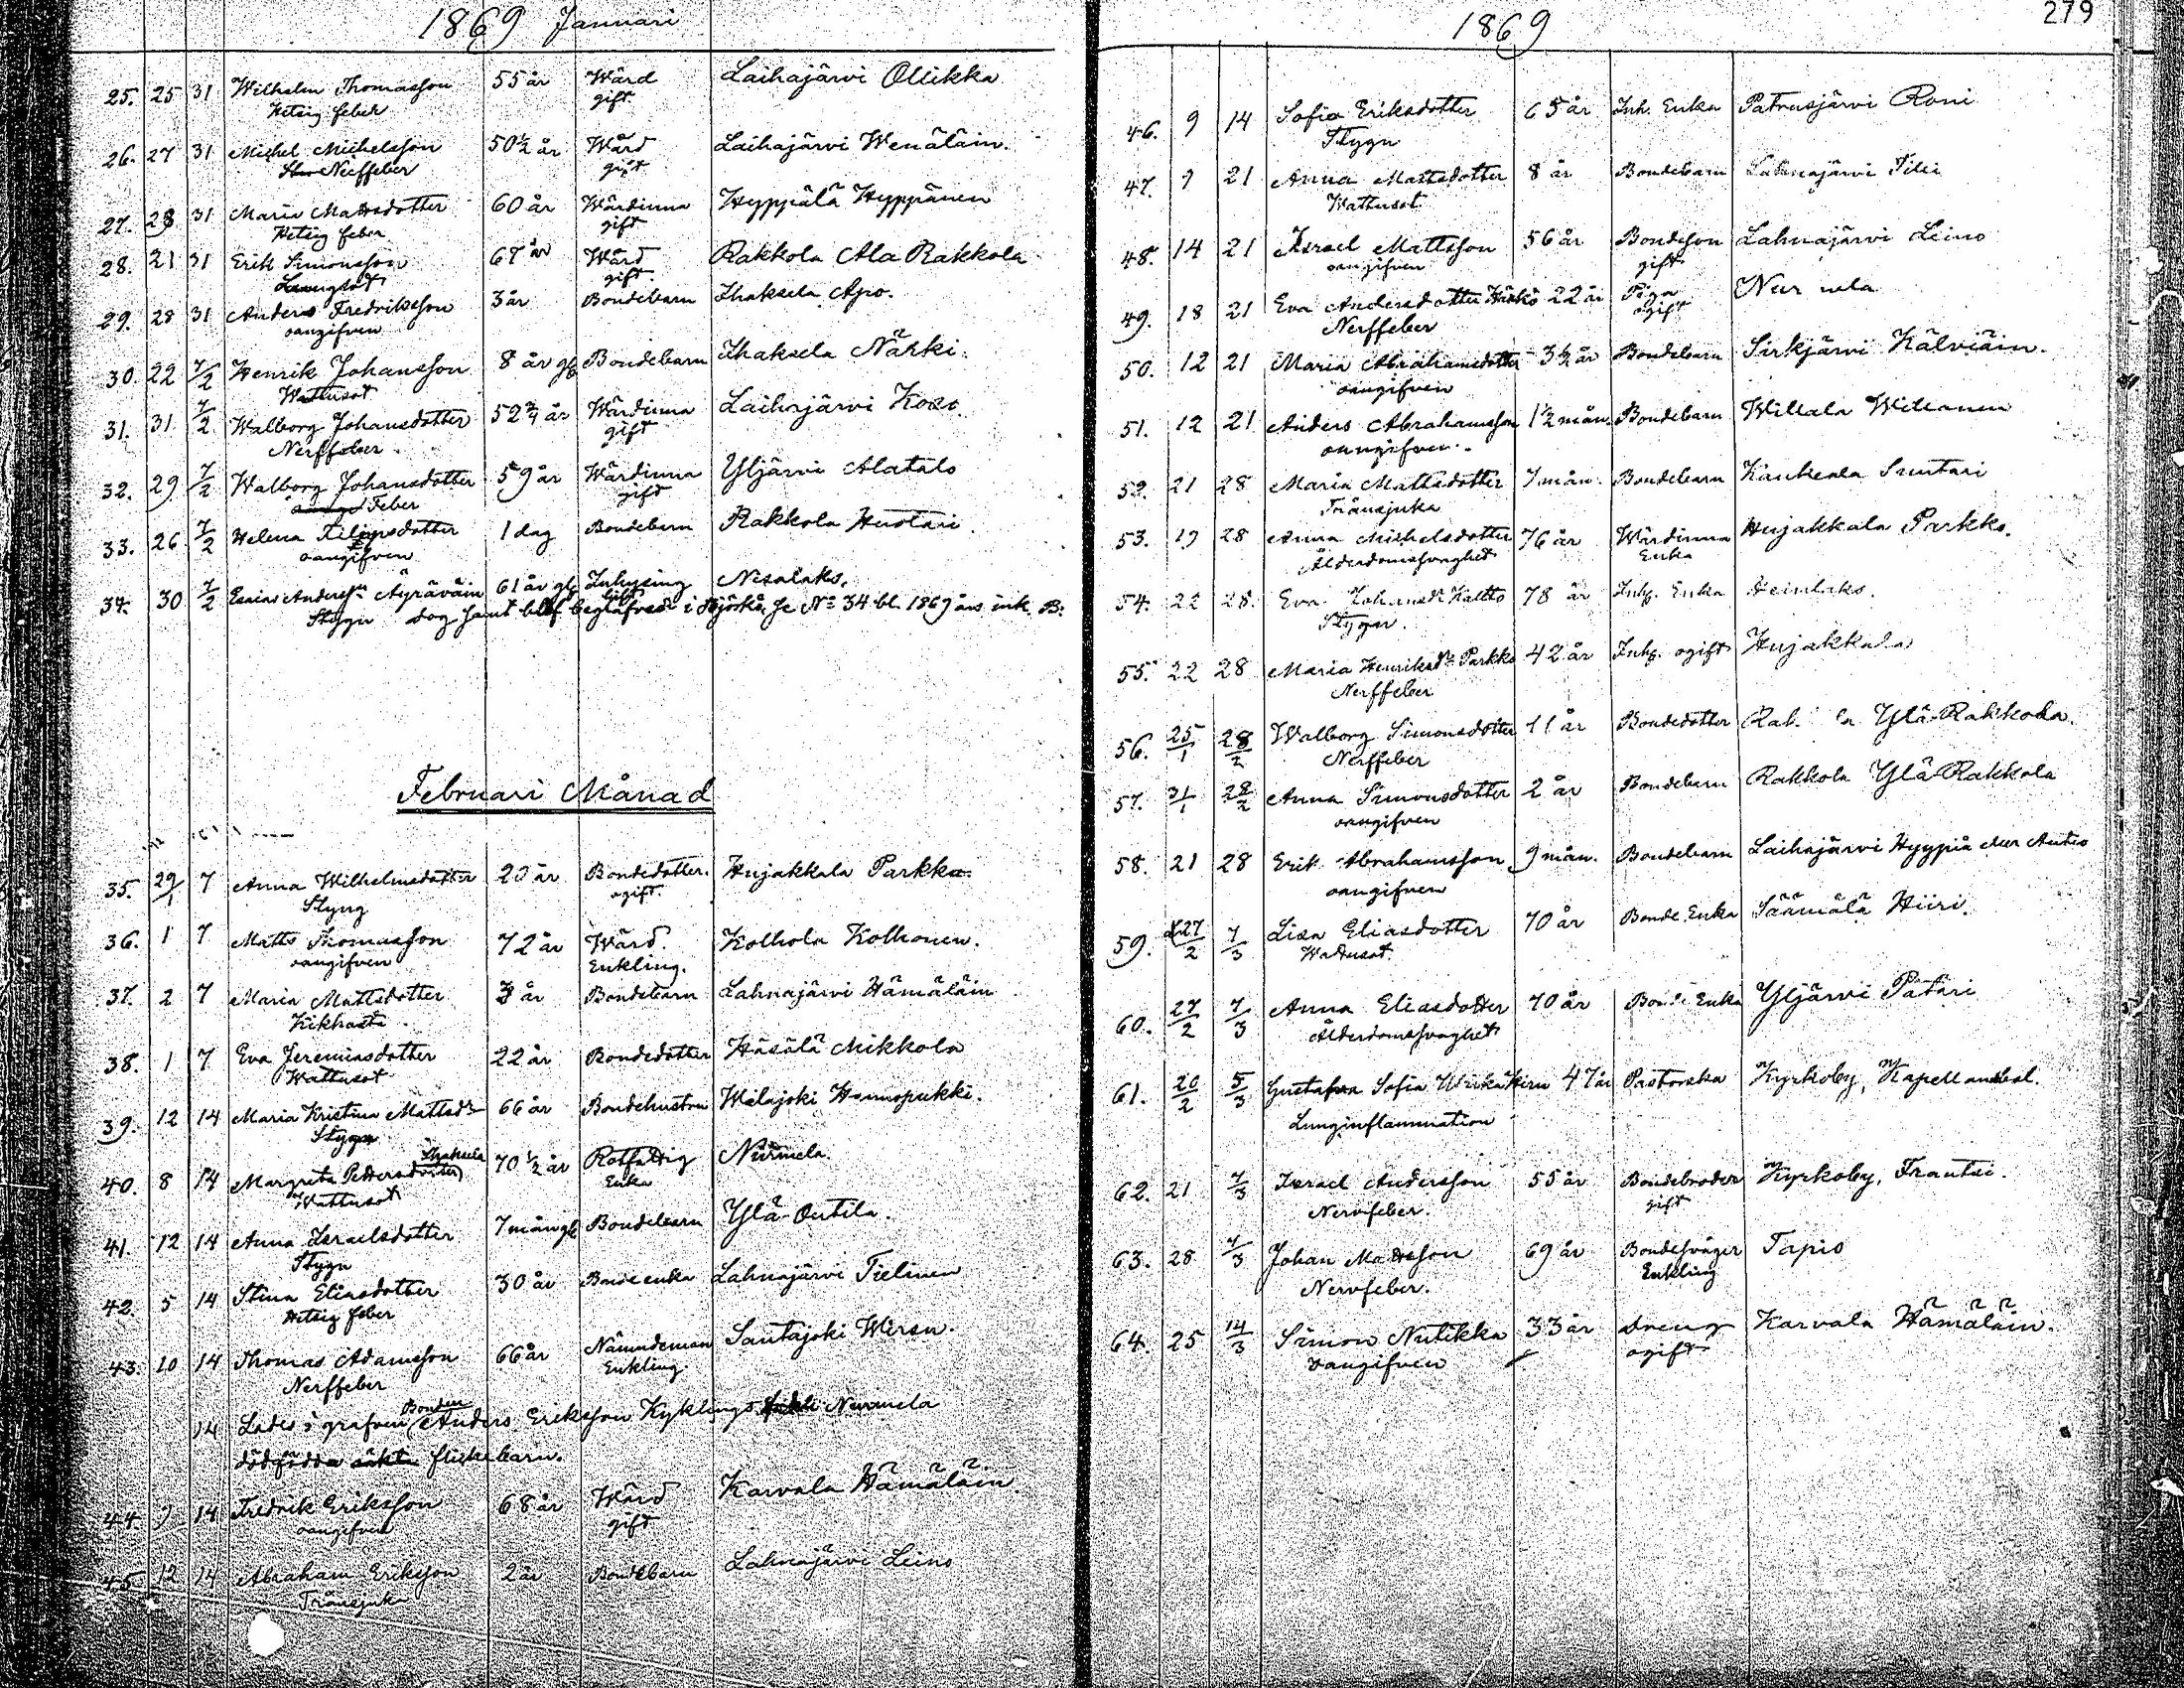 1869 Januari
25. 25 31 Wilhelm Thomasson 55 år Wärd Laihajärvi Ollikka
Hetsig feber gift
26. 27 31 Michel Michelsson 50½ år Wärd Laihajärvi Wenäläin.
Nerffeber gift
27. 28 31 Maria Mattsdotter 60 år Wärdinna Hyppiälä Hyppänen
Hetsig feber gift
28. 21 31 Erik Simonsson 67 år Wärd Rakkola Ala Rakkola
Lungsot gift
29. 28 31 Anders Fredriksson 3 år Bondebarn Ihaksela Apo.
oangifven
30. 22 7/2 Henrik Johansson 8 år gl. Bondebarn Ihaksela Närki.
Wattusot
31. 31 7/2 Walborg Johansdotter 52 3/4 år Wärdinna Laihajärvi
Nerffeber. gift
32. 29 7/2 Walborg Johansdotter 59 år Wärdinna Yljärvi Alatalo
Feber gift
33. 26 7/2 Helena Filipsdotter 1 dag Bondebarn Rakkola Huotari
oangifven
34. 30 7/2 Esaias Anderss:n Äyräväin 61 år gl. Inhysing Nisalaks.
Stygn dog samt blef begrafven i 34 bl. 1869 års ink. B:
Februari Månad
35. 29/1 7 Anna Wilhelmsdotter 20 år Bondedotter. Hujakkala Parkka.
Styng ogift.
36. 1 7 Matts Thomasson 72 år Wärd. Kolhola Kolhonen.
oangifven Enkling.
37. 2 7 Maria Mattsdotter 3 år Bondebarn Lahnajärvi Hämäläin
Kikhosta.
38. 1 7 Eva Jeremiasdotter 22 år Bondedotter Häsälä Mikkola
Wattusot
39. 12 14 Maria Kristina Mattsdr 66 år Bondehustru Wälajoki Hannopukki.
Stygn
40. 8 14 Margreta Pettersdotter Ihaksela 70 ½ år Rotfattig Nurmela.
Wattusot Enka
41. 12 14 Anna Israelsdotter 7 mån gl. Bondebarn Ylä-Outila.
Stygn
42. 5 14 Stina Eliasdotter 30 år Bonde enka Lahnajärvi Tielinen
Hetsig feber
43. 10 14 Thomas Adamsson 66 år Nämndeman Santajoki Wirsu.
Nerffeber Enkling.
14 Lades i grafven Bonden Anders Eriksson Kyklings Nurmela
dödfödda äkta flickebarn.
44. 9 14 Fredrik Eriksson 68 år Wärd Karvala Hämäläin.
oangifven gift
45. 12 14 Abraham Eriksson 2 år Bondebarn Lahnajärvi Leino
Tränsjuka
1869 279
46. 9 14 Sofia Eriksdotter 65 år Inh. Enka Patrusjärvi Roni
Stygn
47. 9 21 Anna Mattsdotter 8 år Bondebarn Lahnajärvi Tilli
Wattusot
48. 14 21 Israel Mattsson 56 år Bondeson Lahnajärvi Leino
oangifven gift
49. 18 21 Eva Andersdotter Härkö 22 år Piga Nurmela
Nerffeber ogift
50. 12 21 Maria Abrahamsdotter 3½ år Bondebarn Sirkjärvi Kälviäin.
oangifven
51. 12 21 Anders Abrahamsson 1½ mån. Bondebarn Willala Willanen
oangifven.
52. 21 28 Maria Mattsdotter 7 mån. Bondebarn Kaukeala Suutari
Tränsjuka
53. 19 28 Anna Michelsdotter 76 år Wärdinna Hujakkala Parkko.
Ålderdomssvaghet Enka
54. 22 28. Eva Johansdr Kaltto 78 år Inhs. Enka Heinlaks.
Stygn.
55. 22 28 Maria Henriksdr Parkko 42 år Inhs. ogift Hujakkala
Nerffeber
56. 25/1 28/2 Walborg Simonsdotter 11 år Bondedotter Rak la Ylä-Rakkola.
Nerffeber
57. 31/1 28/2 Anna Simonsdotter 2 år Bondebarn Rakkola Ylä-Rakkola
oangifven
58. 21 28 Erik Abrahamsson 9 mån. Bondebarn Laihajärvi Hyypiä eller Autio
oangifven
59. 27/2 7/3 Lisa Eliasdotter 70 år Bonde Enka Säämälä Hiiri.
Wattusot.
60. 27/2 7/3 Anna Eliasdotter 70 år Bonde Enka Yljärvi Pätäri
Ålderdomssvaghet
61. 20/2 5/3 Gustafva Sofia Ulrika Hirn 47 år Pastorska Kyrkoby, Kapellansbol.
Lunginflammation
62. 21 7/3 Israel Andersson 55 år Bondebroder Kyrkoby, Frantsi.
Nervfeber. gift
63. 28 7/3 Johan Mattsson 69 år Bondesvåger Tapio
Nervfeber. Enkling
64. 25 14/3 Simon Nutikka 33 år Dreng Karvala Hämäläin.
oangifven ogift